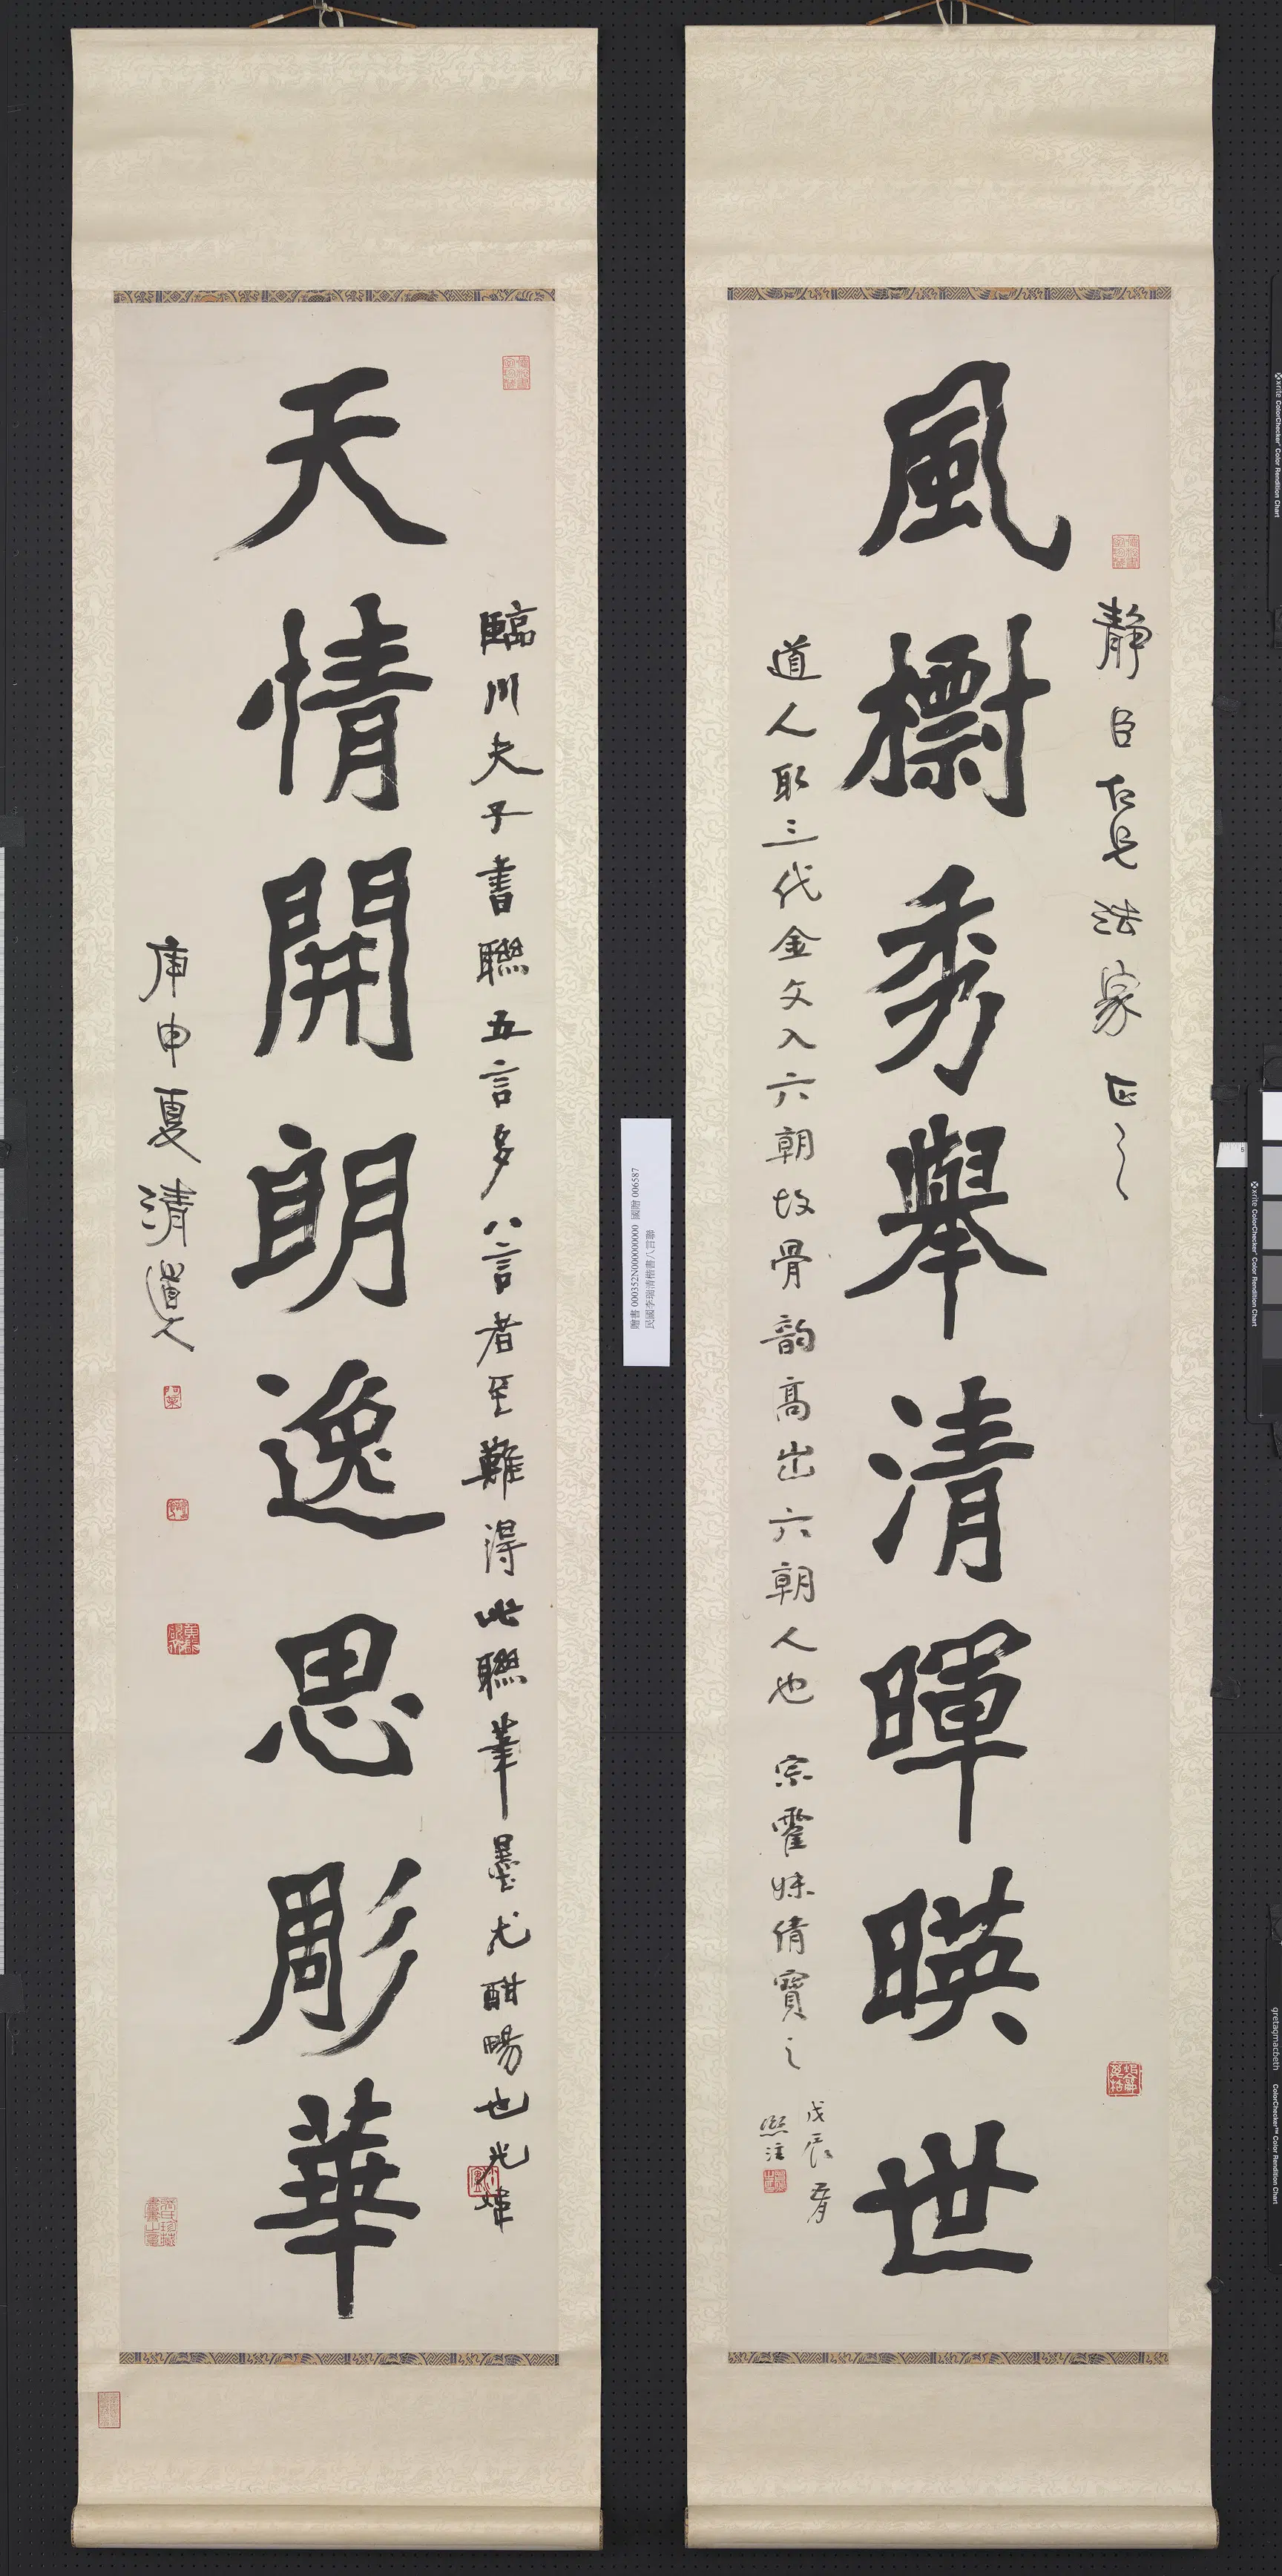 風檦秀舉清暉暎世
靜臣仁兄法家正之
道人取三代金文入六朝故骨韵高出六朝人也 宗霍妹倩寶之
戊辰
熙注
天情開朗逸思彫華
臨川夫子書聯五言多八言者至難得此聯筆墨尤酣暢也光煒
庚申夏清道人
贈書 000352N000000000 國贈 006587
民國李瑞清楷書八言聯
x·rite ColorChecker Color Rendition Chart
x·rite ColorChecker Color Rendition Chart
gretagmacbeth ColorChecker Color Rendition Chart